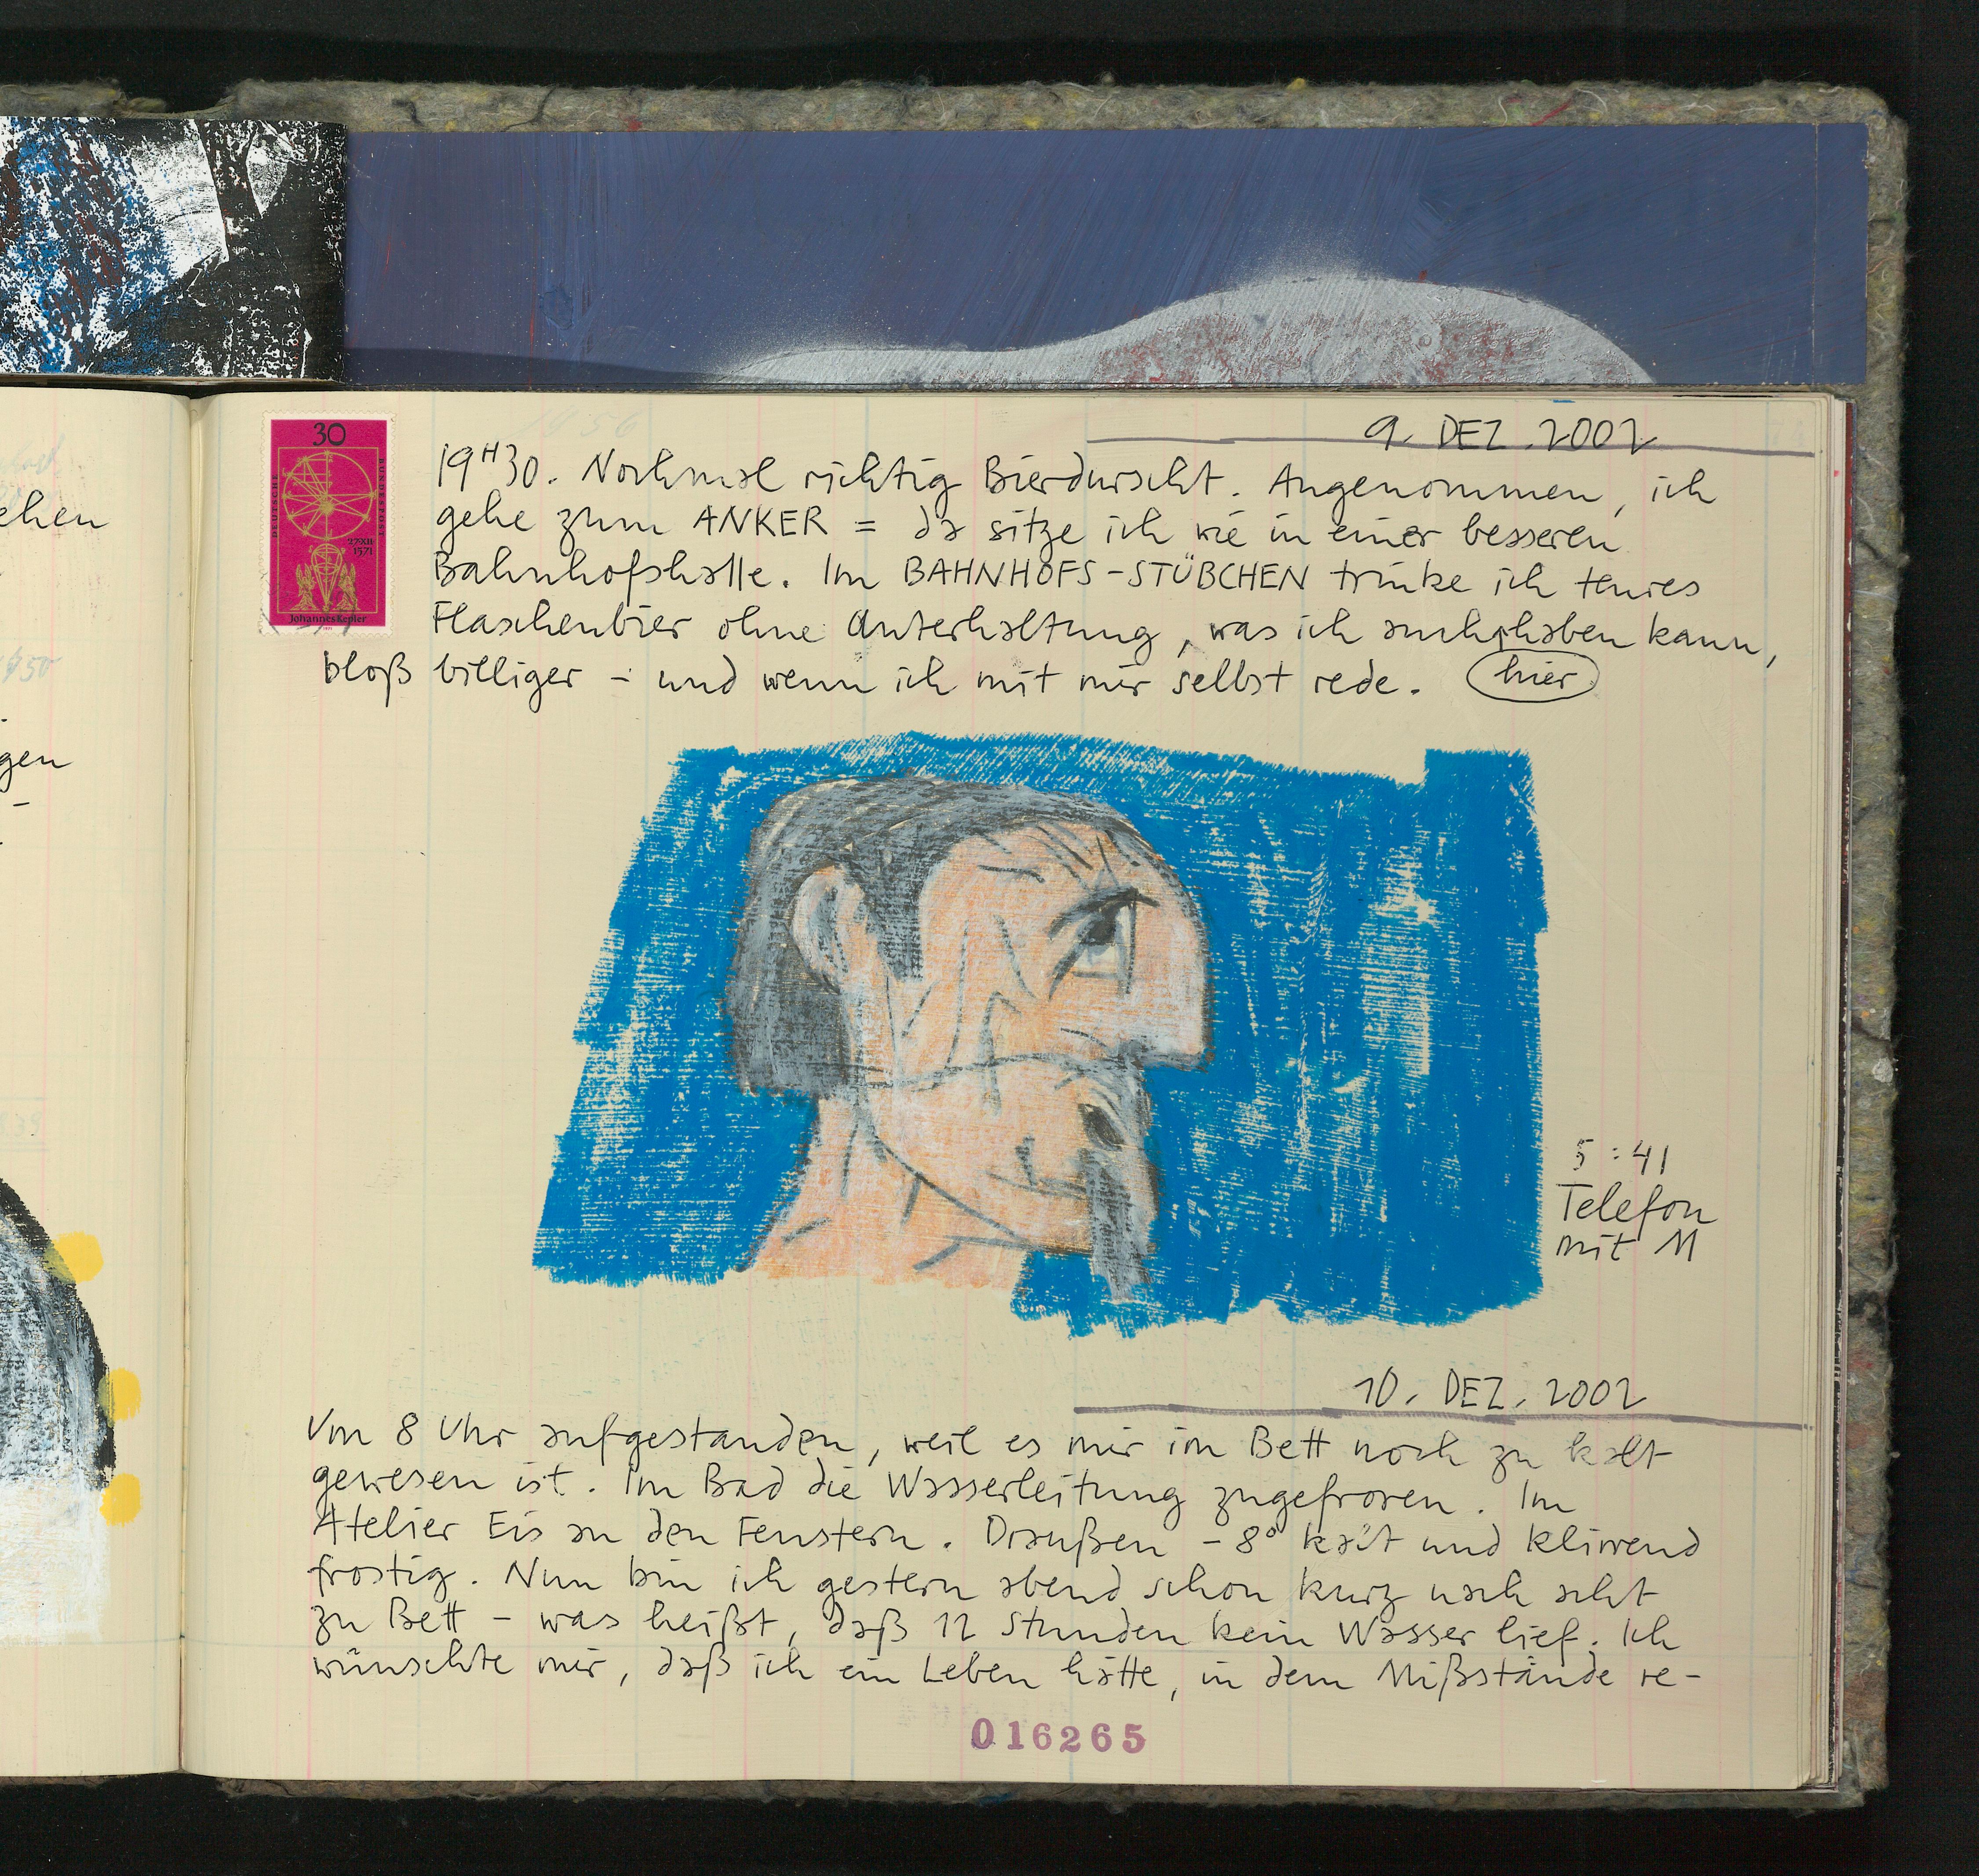 9. DEZ. 2002
30
DEUTSCHE
BUNDESPOST
27·XII
1571
Johannes Kepler
19H30. Nochmal richtig Bierdurscht. Angenommen, ich
gehe zum ANKER = da sitze ich wie in einer besseren
Bahnhofshalle. Im BAHNHOFS-STÜBCHEN trinke ich teures
Flaschenbier ohne Unterhaltung, was ich auch haben kann,
bloß billiger – und wenn ich mit mir selbst rede. hier
5:41
Telefon
mit M
10. DEZ. 2002
Vor 8 Uhr aufgestanden, weil es mir im Bett noch zu kalt
gewesen ist. Im Bad die Wasserleitung zugefroren. Im
Atelier Eis an den Fenstern. Draußen -8° kalt und klirrend
frostig. Nun bin ich gestern abend schon kurz nach acht
zu Bett – was heißt, daß 12 Stunden kein Wasser lief. Ich
wünschte mir, daß ich ein Leben hätte, in dem Mißstände re-
016265
ehen
gen